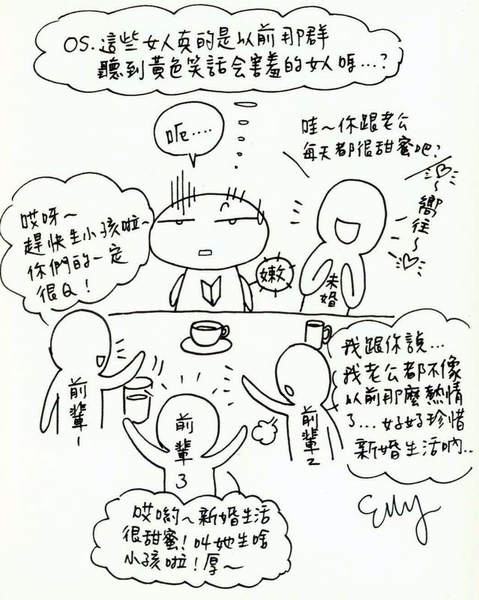 OS. 這些女人真的是以前那群
聽到黃色笑話会害羞的女人嗎...?
呃....
哇~你跟老公
每天都很甜蜜吧?
嚮往~
哎呀~
趕快生小孩啦~
你們的一定
很Q!
嫩
未婚
前輩1
前輩2
前輩3
我跟你說...
我老公都不像
以前那麼熱情
了...好好珍惜
新婚生活吶..
哎喲~新婚生活
很甜蜜!叫她生啥
小孩啦!厚~
Elly